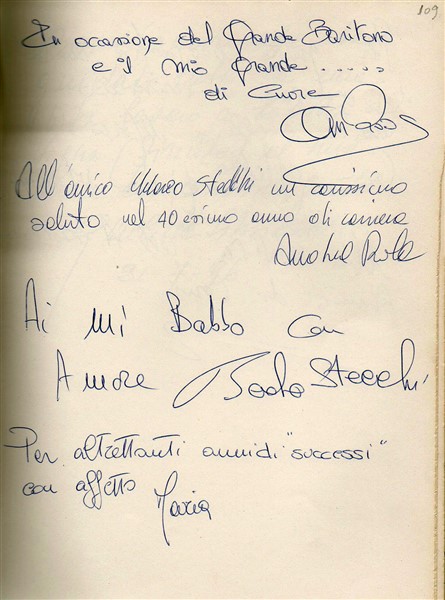 109
In occasione del Grande Baritono
e il mio grande .....
di Cuore
All'amico Marco Stecchi un carissimo
saluto nel 40esimo anno di carriera
Ai mi Babbo con
Amore Stecchi
Per altrettanti anni di "successi"
con affetto
Maria